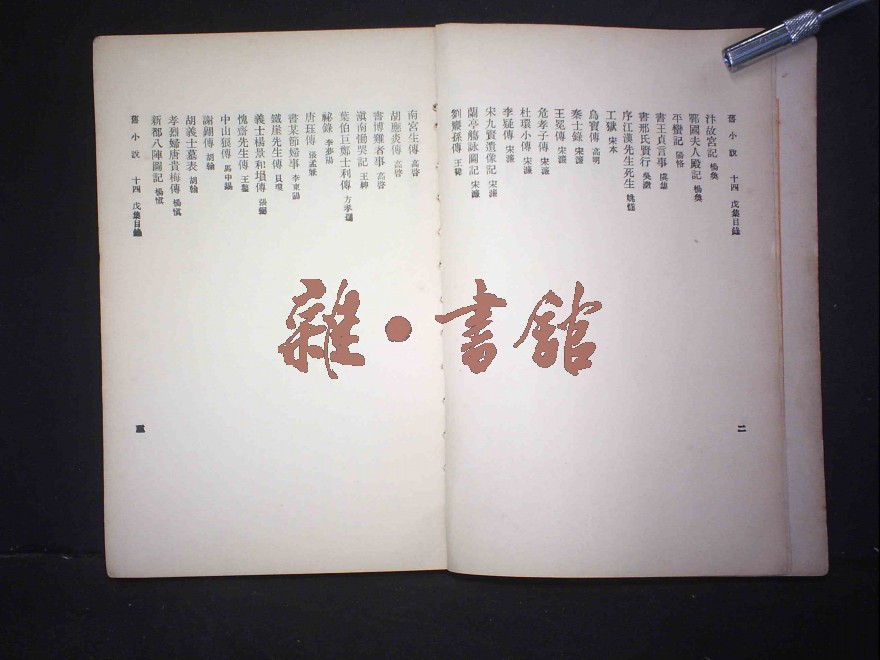 舊小說 十四 戊集目錄
汴故宮記 楊奐
鄆國夫人殿記 楊奐
平蠻記
書王貞言事 虞集
書邢氏賢行 吳澂
序江漢先生死生 姚燧
工獄 宋本
烏寶傳 高明
秦士錄 宋濂
王冕傳 宋濂
危孝子傳 宋濂
杜環小傳 宋濂
李疑傳 宋濂
宋九賢遺像記 宋濂
蘭亭觴詠圖記 宋濂
劉龑孫傳 王褘
二
南宮生傳 高啓
胡應炎傳 高啓
書博雞者事 高啓
滇南慟哭記 王紳
葉伯巨鄭士利傳 方孝孺
祕錄 李夢陽
唐珏傳 張孟兼
書某節婦事 李東陽
鐵崖先生傳 貝瓊
義士楊景和塤傳 張弼
愧齋先生傳 王鏊
中山狼傳 馬中錫
謝翶傳 胡翰
胡義士墓表 胡翰
孝烈婦唐貴梅傳 楊慎
新都八陣圖記 楊慎
舊小說 十四 戊集目錄
三
雜·書館